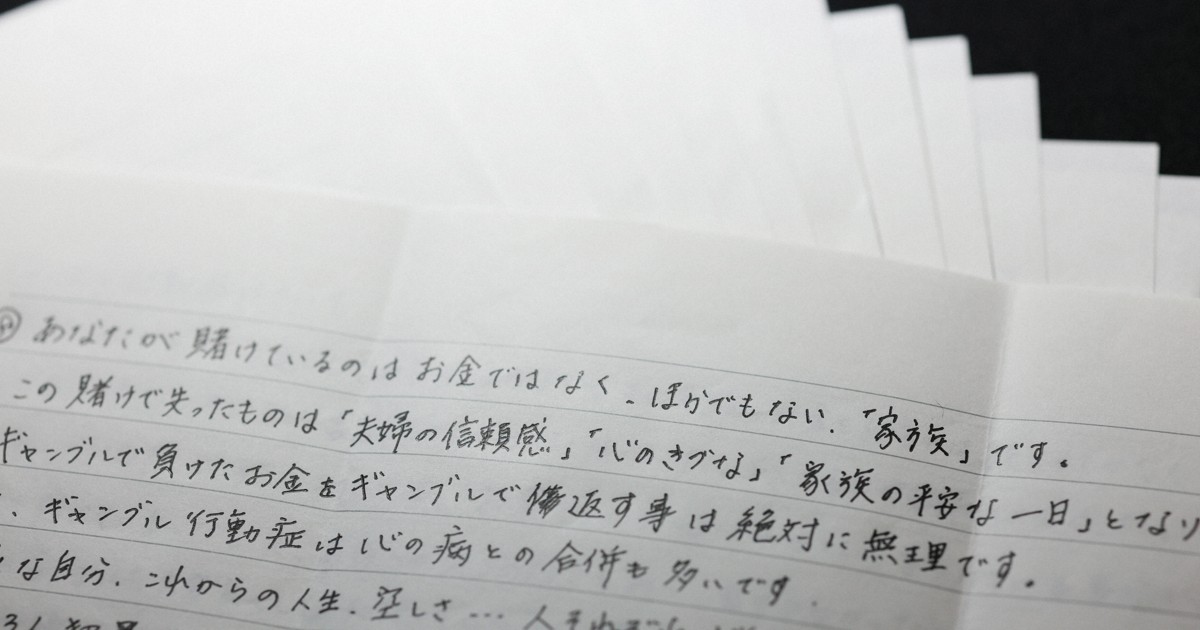 あなたが賭けているのはお金ではなく、ほかでもない、「家族」です。
この賭けで失ったものは「夫婦の信頼感」「心のきづな」「家族の平安な一日」となり
ギャンブルで負けたお金をギャンブルで返す事は絶対に無理です。
、ギャンブル行動症は心の病との合併も多いです.
な自分、これからの人生、空しさ…